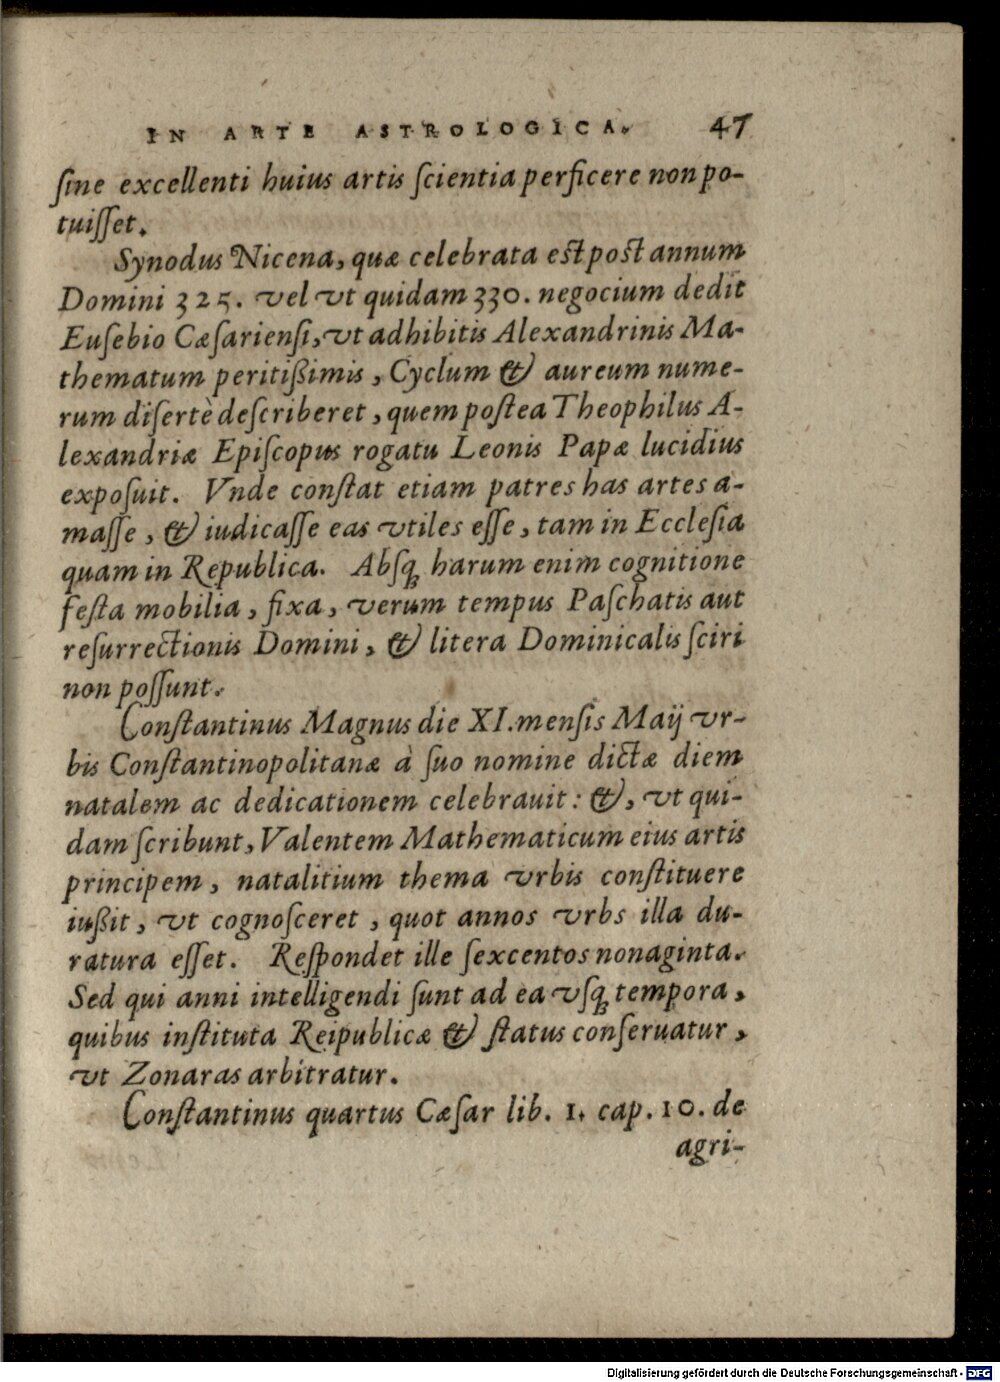 IN ARTE ASTROLOGICA. 47
ſine excellenti huius artis ſcientia perficere non po-
tuiſſet.
Synodus Nicena, quæ celebrata est post annum
Domini 325. vel vt quidam 330. negocium dedit
Euſebio Cæſarienſi, vt adhibitis Alexandrinis Ma-
thematum peritißimis, Cyclum & aureum nume-
rum diſertè deſcriberet, quem poſtea Theophilus A-
lexandriæ Epiſcopus rogatu Leonis Papæ lucidius
expoſuit. Vnde conſtat etiam patres has artes a-
maſſe, & iudicaſſe eas vtiles eſſe, tam in Eccleſia
quam in Republica. Abſq; harum enim cognitione
feſta mobilia, fixa, verum tempus Paſchatis aut
reſurrectionis Domini, & litera Dominicalis ſciri
non poſſunt.
Conſtantinus Magnus die XI. menſis Maij vr-
bis Conſtantinopolitanæ à ſuo nomine dictæ diem
natalem ac dedicationem celebrauit: &, vt qui-
dam ſcribunt, Valentem Mathematicum eius artis
principem, natalitium thema vrbis conſtituere
iußit, vt cognoſceret, quot annos vrbs illa du-
ratura eſſet. Reſpondet ille ſexcentos nonaginta.
Sed qui anni intelligendi ſunt ad ea vſq; tempora,
quibus inſtituta Reipublicæ & ſtatus conſeruatur,
vt Zonaras arbitratur.
Conſtantinus quartus Cæſar lib. 1. cap. 10. de
agri-
Digitalisierung gefördert durch die Deutsche Forschungsgemeinschaft - DFG